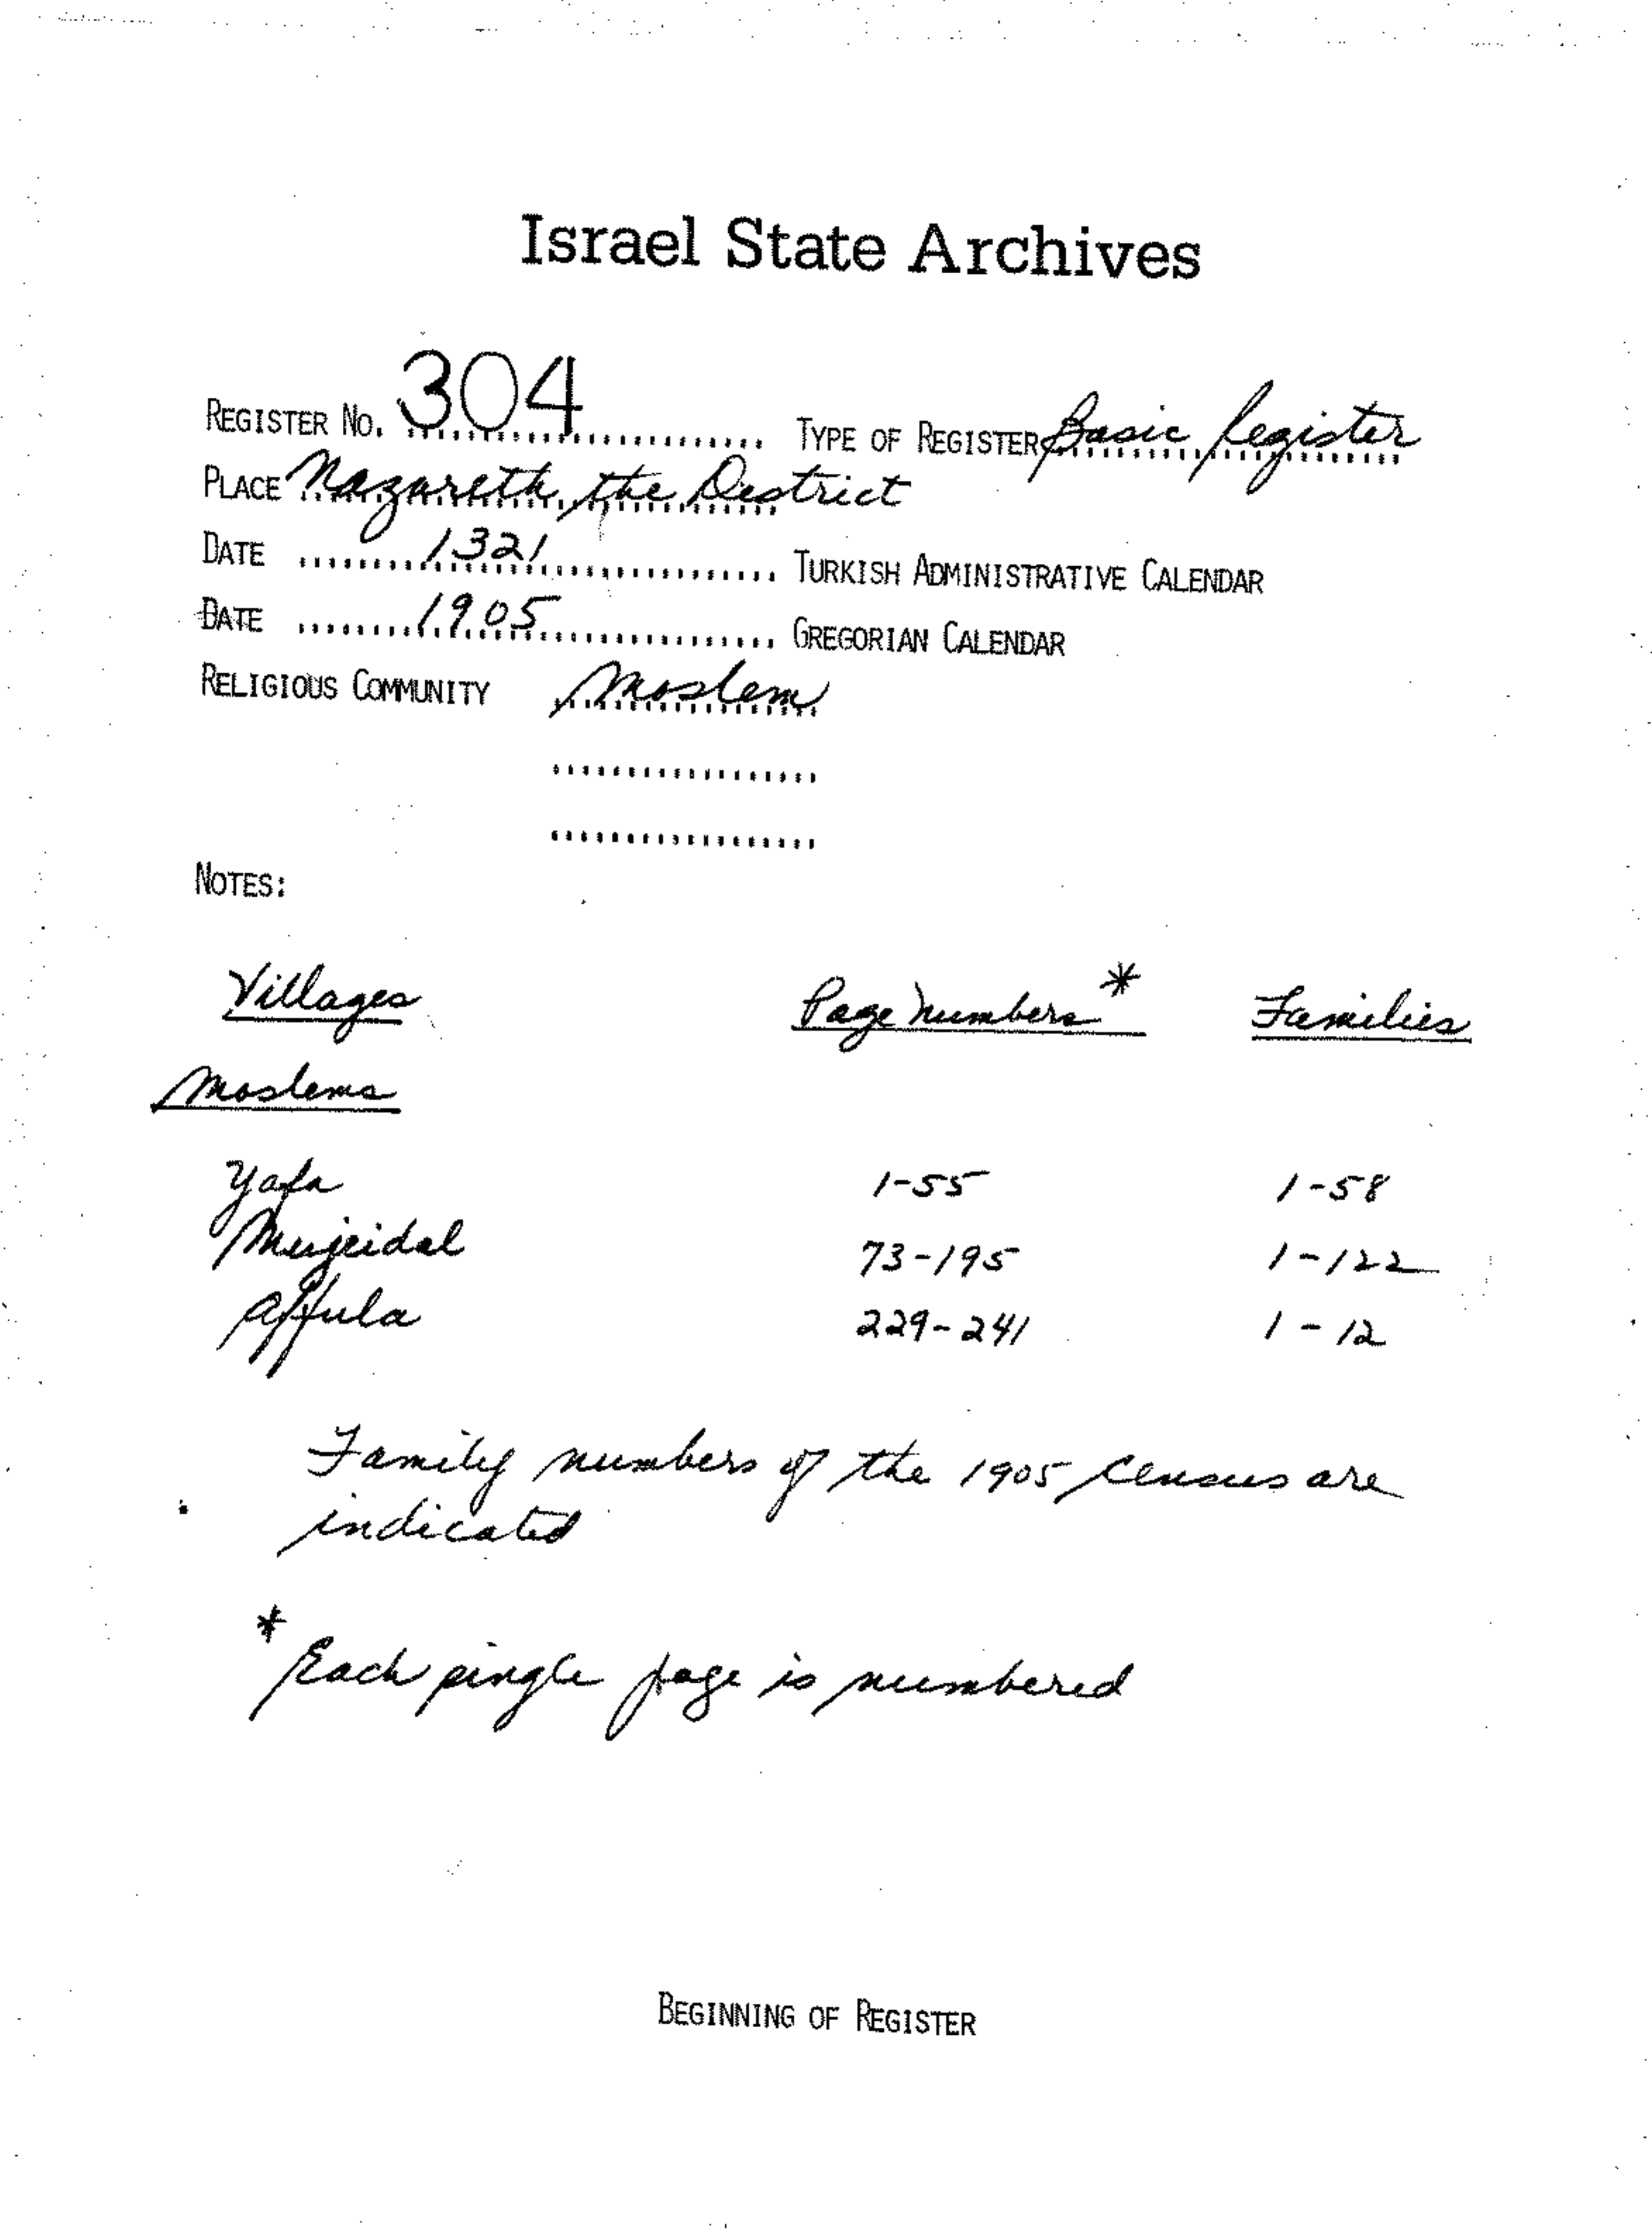 Israel State Archives
REGISTER No. 304 TYPE OF REGISTER Basic Register
PLACE Nazareth, the District
DATE 1321 TURKISH ADMINISTRATIVE CALENDAR
DATE 1905 GREGORIAN CALENDAR
RELIGIOUS COMMUNITY Moslem
NOTES:
Villages Page Numbers * Families
Moslems
Yafa 1-55 1-58
Mujeidal 73-195 1-122
Affula 229-241 1-12
Family numbers of the 1905 census are
indicated
* Each single page is numbered
BEGINNING OF REGISTER